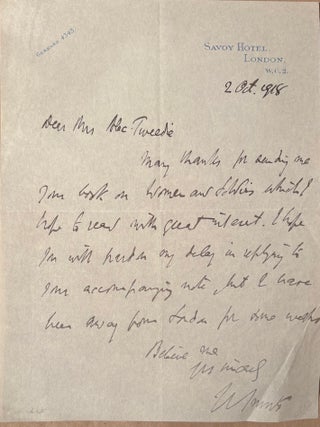 GERRARD 4343.
SAVOY HOTEL,
LONDON,
W.C.2.
2 Oct. 1918
Dear Mrs Alec-Tweedie
Many thanks for sending me
your book on Women and Soldiers which I
hope to read with great interest. I hope
you will pardon my delay in replying to
your accompanying note, but I have
been away from London for some weeks
Believe me
yrs sincerely